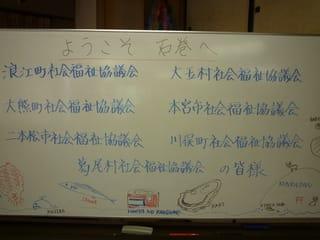 ようこそ 石巻へ
浪江町社会福祉協議会 大玉村社会福祉協議会
大熊町社会福祉協議会 本宮市社会福祉協議会
二本松市社会福祉協議会 川俣町社会福祉協議会
葛尾村社会福祉協議会 の皆様